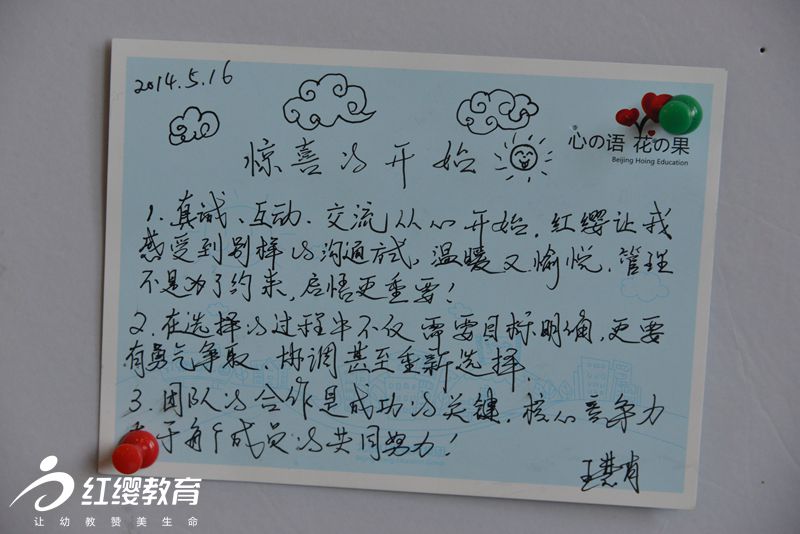 2014.5.16
心の语 花の果
Beijing Hoing Education
惊喜的开始
1. 真诚、互动、交流从心开始，红缨让我
感受到别样的沟通方式，温暖又愉悦，管理
不是为了约束，启悟更重要！
2. 在选择的过程中不仅需要目标明确，更要
有勇气争取、协调甚至重新选择.
3. 团队的合作是成功的关键，核心竞争力
于每个成员的共同努力！
王慧肖
红缨教育
让幼教赞美生命